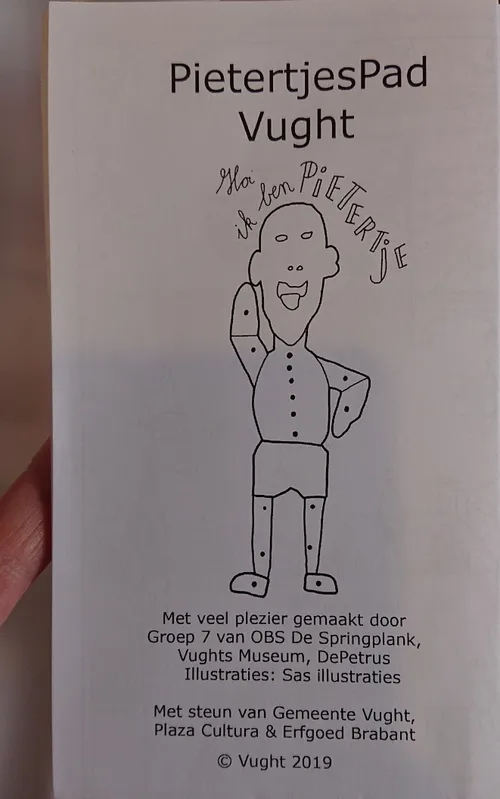 PietertjesPad
Vught
Hoi
ik ben PiETERTjE
Met veel plezier gemaakt door
Groep 7 van OBS De Springplank,
Vughts Museum, DePetrus
Illustraties: Sas illustraties
Met steun van Gemeente Vught,
Plaza Cultura & Erfgoed Brabant
© Vught 2019